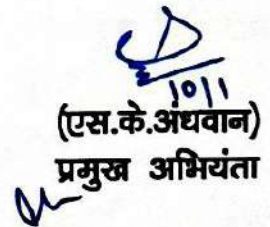 10/1
(एस.के.अंधवान)
प्रमुख अभियंता